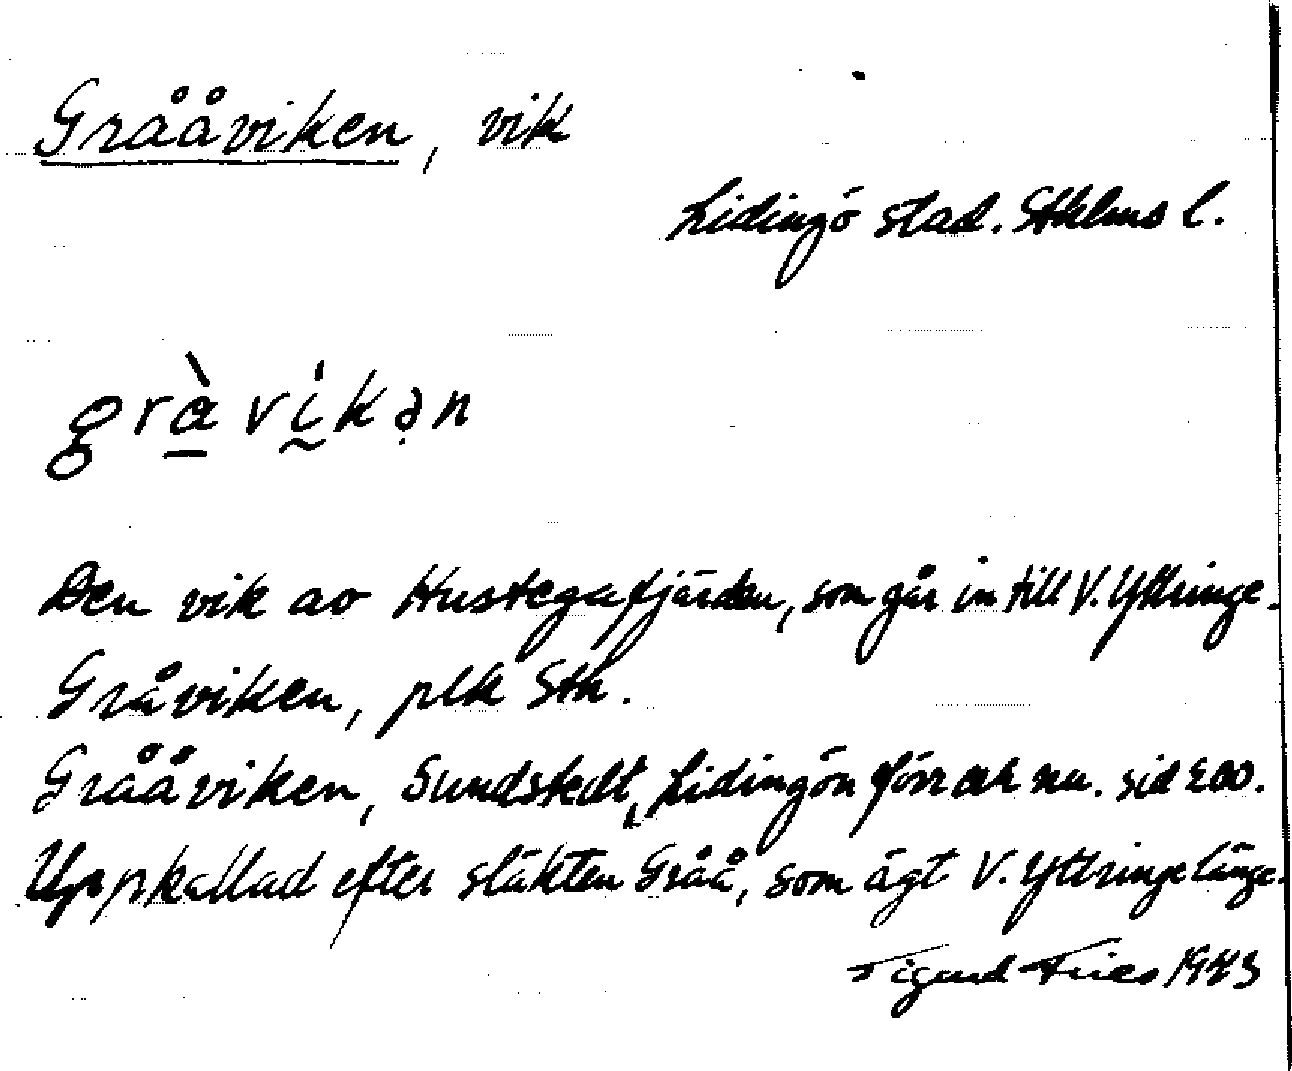 Grååviken, vik
Lidingö stad. Sthlms l.
gràvíkən
Den vik av Hustegafjärden, som går in till V. Yttringe.
Gråviken, plk Sth.
Grååviken, Sundstedt, Lidingön förr och nu. sid 200.
Uppkallad efter släkten Gråå, som ägt V. Yttringe länge.
Sigurd Fries 1943